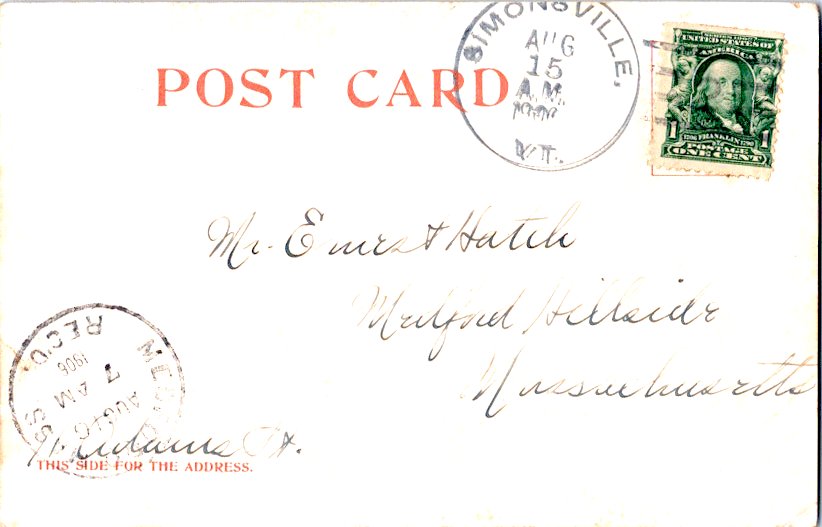 POST CARD
SIMONSVILLE,
AUG
15
A.M.
1906
VT.
SERIES 1902
UNITED STATES OF
AMERICA
1 1706 FRANKLIN 1790 1
POSTAGE
ONE CENT
Mr. Ernest Hatch
Medford Hillside
Massachusetts
REC'D.
1906
7 AM
AUG 16
Adams St.
THIS SIDE FOR THE ADDRESS.